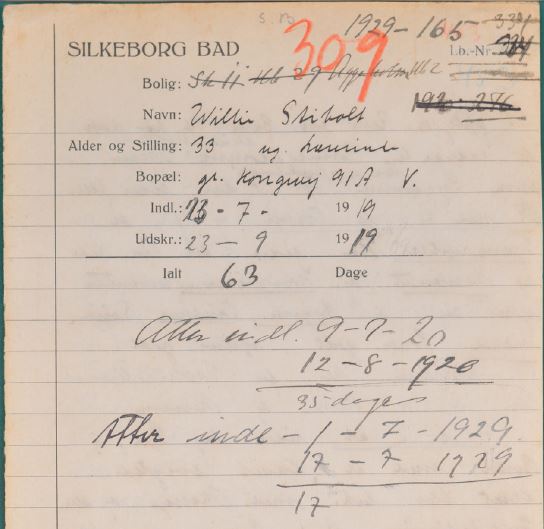 1929-165
309
SILKEBORG BAD
Lb.-Nr.
Bolig:
Navn: Willie Stibolt
Alder og Stilling: 33 ug. Lærerinde
Bopæl: gl. Kongevej 91A V.
Indl.: 23-7- 1919
Udskr.: 23-9 1919
Ialt 63 Dage
Atter indl. 9-7-20
12-8-1920
35 dage
Atter indl-1-7-1929.
17-7 1929
17